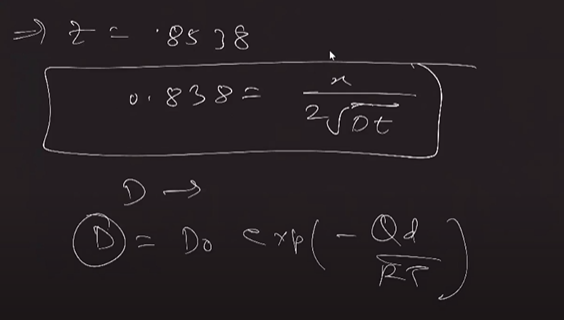 ⇒ z = .8538
0.838 = x / 2√Dt
D →
D = D₀ exp(- Qd / RT)